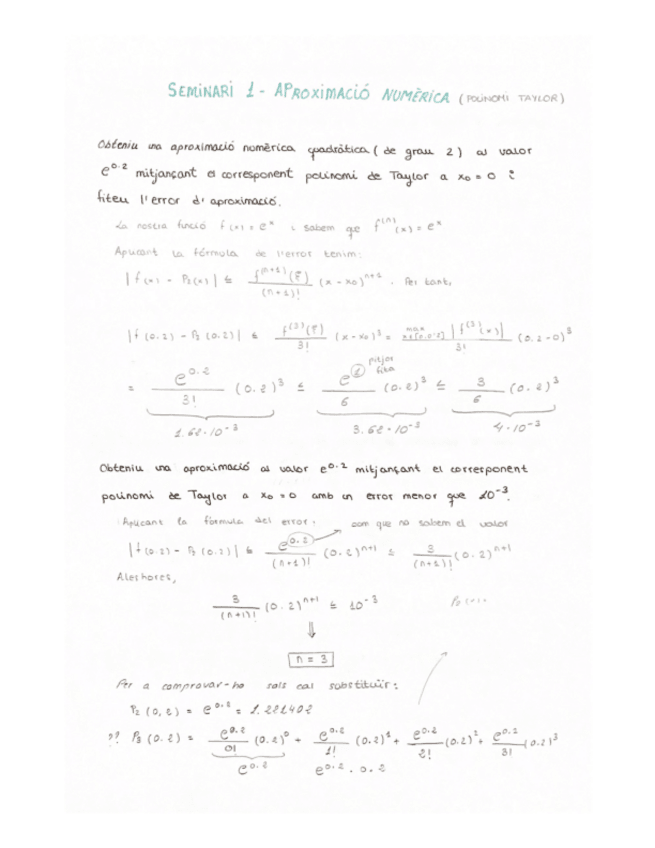 SEMINARI 1 - APROXIMACIÓ NUMÈRICA (POLINOMI TAYLOR)
Obteniu una aproximació numèrica quadràtica (de grau 2) al valor
e^0.2 mitjançant el corresponent polinomi de Taylor a x₀ = 0 i
fiteu l'error d'aproximació.
La nostra funció f(x) = e^x i sabem que f^(n)(x) = e^x
Aplicant la fórmula de l'error tenim:
|f(x) - P₂(x)| ≤ f^(n+1)(ξ)/(n+1)! (x - x₀)^n+1 . Per tant,
|f(0.2) - P₂(0.2)| ≤ f^(3)(ξ)/3! (x - x₀)^3 = max x∈[0,0.2] |f^(3)(x)|/3! (0.2-0)^3
pitjor
fita
= e^0.2/3! (0.2)^3 ≤ e^1/6 (0.2)^3 ≤ 3/6 (0.2)^3
1.62·10^-3 3.62·10^-3 4·10^-3
Obteniu una aproximació al valor e^0.2 mitjançant el corresponent
polinomi de Taylor a x₀ = 0 amb un error menor que 10^-3.
Aplicant la fórmula del error: com que no sabem el valor
|f(0.2) - P₂(0.2)| ≤ e^0.2/(n+1)! (0.2)^n+1 ≤ 3/(n+1)! (0.2)^n+1
Aleshores,
3/(n+1)! (0.2)^n+1 ≤ 10^-3
⇓
n = 3
Per a comprovar-ho sols cal substituïr:
P₂(0,2) = e^0.2 = 1.221402
?? P₃(0.2) = e^0.2/0! (0.2)^0 + e^0.2/1! (0.2)^1 + e^0.2/2! (0.2)^2 + e^0.2/3! (0.2)^3
e^0.2 e^0.2 · 0.2